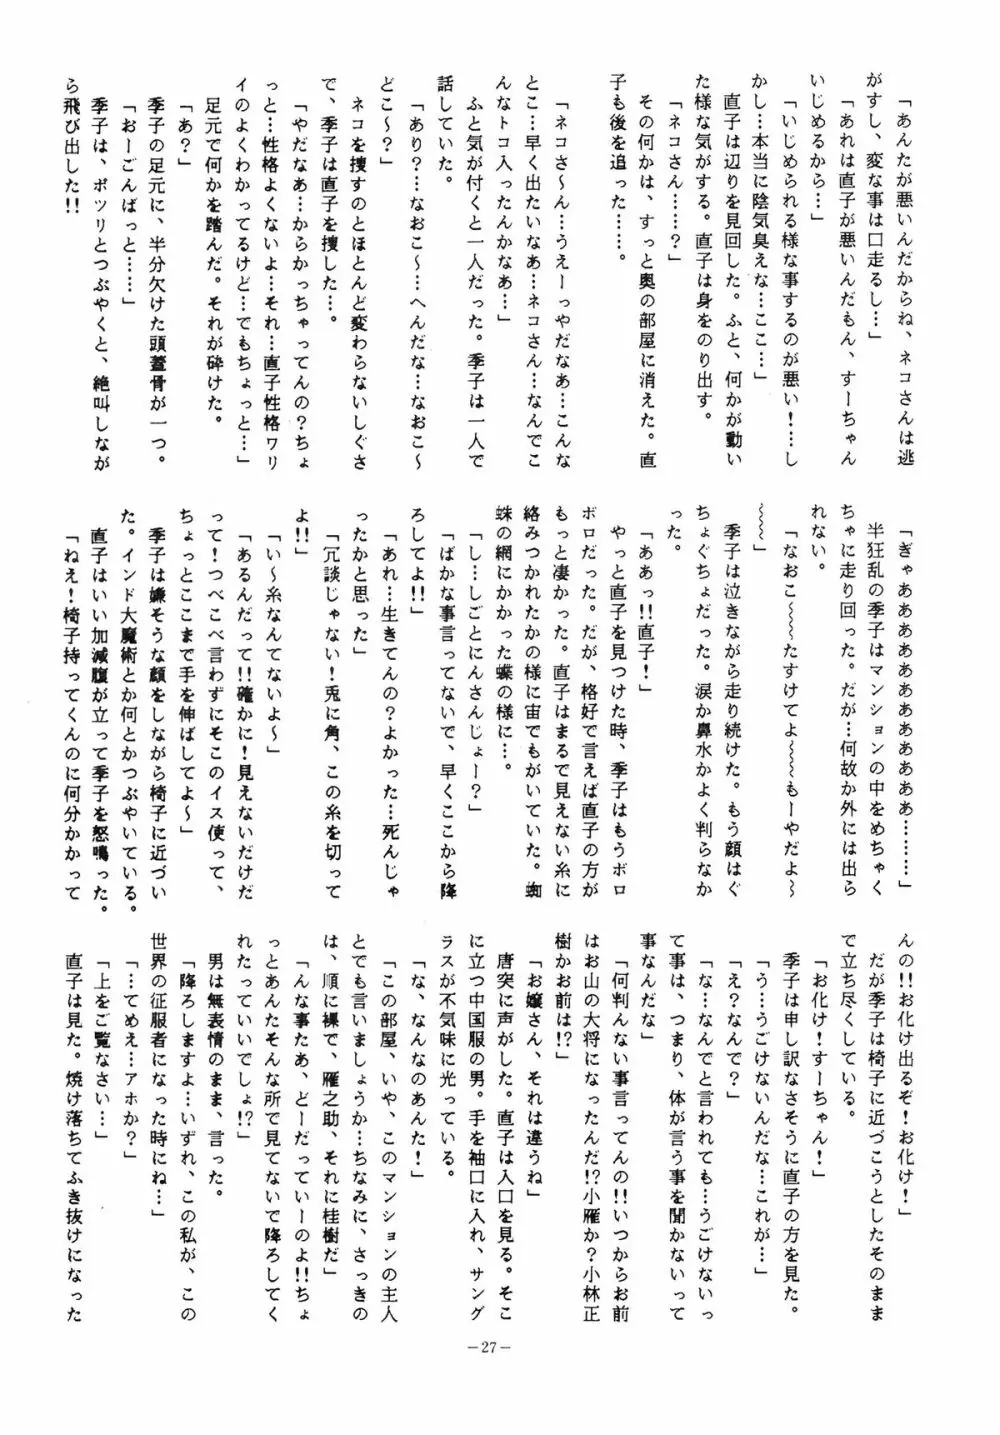 「あんたが悪いんだからね、ネコさんは逃
がすし、変な事は口走るし…」
「あれは直子が悪いんだもん、すーちゃん
いじめるから…」
「いじめられる様な事するのが悪い！…し
かし…本当に陰気臭えな…ここ…」
直子は辺りを見回した。ふと、何かが動い
た様な気がする。直子は身をのり出す。
「ネコさん……？」
その何かは、すっと奥の部屋に消えた。直
子も後を追った……。
「ネコさ〜ん…うえーっやだなあ…こんな
とこ…早く出たいなあ…ネコさん…なんでこ
んなトコ入ったんかなあ…」
ふと気が付くと一人だった。季子は一人で
話していた。
「あり？…なおこ〜…へんだな…なおこ〜
どこ〜？」
ネコを捜すのとほとんど変わらないしぐさ
で、季子は直子を捜した…。
「やだなあ…からかっちゃってんの？ちょ
っと…性格よくないよ…それ…直子性格ヮリ
イのよくわかってるけど…でもちょっと…」
足元で何かを踏んだ。それが砕けた。
「あ？」
季子の足元に、半分欠けた頭蓋骨が一つ。
「おーごんばっと……」
季子は、ボツリとつぶやくと、絶叫しなが
ら飛び出した!!
「ぎゃああああああああああああ…………」
半狂乱の季子はマンションの中をめちゃく
ちゃに走り回った。だが…何故か外には出ら
れない。
「なおこ〜〜〜たすけてよ〜〜〜もーやだよ〜
〜〜〜」
季子は泣きながら走り続けた。もう顔はぐ
ちょぐちょだった。涙か鼻水かよく判らなか
った。
「ああっ!!直子！」
やっと直子を見つけた時、季子はもうボロ
ボロだった。だが、格好で言えば直子の方が
もっと凄かった。直子はまるで見えない糸に
絡みつかれたかの様に宙でもがいていた。蜘
蛛の網にかかった蝶の様に…。
「し…しごとにんさんじょー？」
「ばかな事言ってないで、早くここから降
ろしてよ!!」
「あれ…生きてんの？よかった…死んじゃ
ったかと思った」
「冗談じゃない！兎に角、この糸を切って
よ!!」
「い〜糸なんてないよ〜」
「あるんだって!!確かに！見えないだけだ
って！つべこべ言わずにそこのイス使って、
ちょっとここまで手を伸ばしてよ〜」
季子は嫌そうな顔をしながら椅子に近づい
た。インド大魔術とか何とかつぶやいている。
直子はいい加減腹が立って季子を怒鳴った。
「ねえ！椅子持ってくんのに何分かかって
んの!!お化け出るぞ！お化け！」
だが季子は椅子に近づこうとしたそのまま
で立ち尽くしている。
「お化け！すーちゃん！」
季子は申し訳なさそうに直子の方を見た。
「う…うごけないんだな…これが…」
「え？なんで？」
「な…なんでと言われても…うごけないっ
て事は、つまり、体が言う事を聞かないって
事なんだな」
「何判んない事言ってんの!!いつからお前
はお山の大将になったんだ!?小雁か？小林正
樹かお前は!?」
「お嬢さん、それは違うね」
唐突に声がした。直子は入口を見る。そこ
に立つ中国服の男。手を袖口に入れ、サング
ラスが不気味に光っている。
「な、なんなのあんた！」
「この部屋、いや、このマンションの主人
とでも言いましょうか…ちなみに、さっきの
は、順に裸で、雁之助、それに桂樹だ」
「んな事たあ、どーだっていーのよ!!ちょ
っとあんたそんな所で見てないで降ろしてく
れたっていいでしょ!?」
男は無表情のまま、言った。
「降ろしますよ…いずれ、この私が、この
世界の征服者になった時にね…」
「…てめえ…アホか？」
「上をご覧なさい…」
直子は見た。焼け落ちてふき抜けになった
—27—